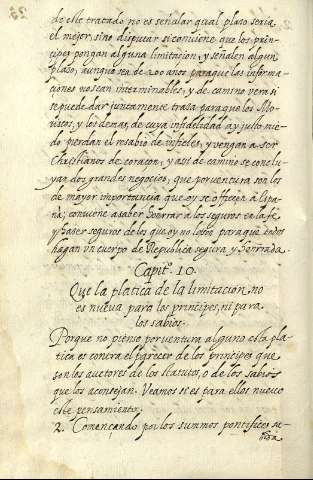 de este tratado no es señalar qual plaso seria
el mejor sino disputar si conuiene que los prin-
cipes pongan alguna limitacion, y señalen algun
plaso, aunque sea de 200 anos paraque las informa-
ciones no sean interminables, y de camino ver si
se puede dar juntamente trasa paraque los Mo-
riscos, y los demas, de cuya infidelidad ay justo mie-
do pierdan el resabio de infieles, y vengan a ser
Christianos de coraçon, y assi de camino se conclu-
yan dos grandes negocios, que por ventura son los
de mayor importancia que oy se offrecen a Espa-
ña; conviene a saber honrrar a los seguros en la fe,
y hacer seguros de los que oy no lo son para que todos
hagan un cuerpo de Republica segura y honrrada.
Capit.º 10.
Que la platica de la limitacion no
es nueva para los principes, ni para
los sabios.
Porque no piense por ventura alguno esta pla-
tica es contra el parecer de los principes que
son los auctores de los statutos, o de los sabios
que los aconsejan. Veamos si es para ellos nuevo
este pensamiento.
2. Començando por los summos pontifices se-